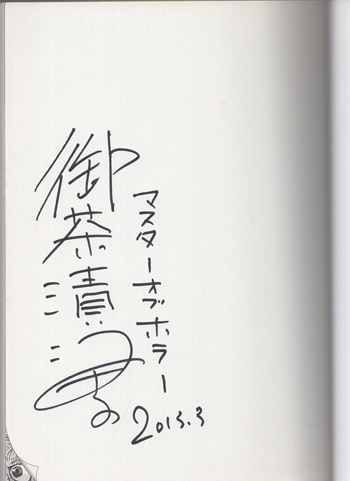 マスターオブホラー
御茶漬
2013.3